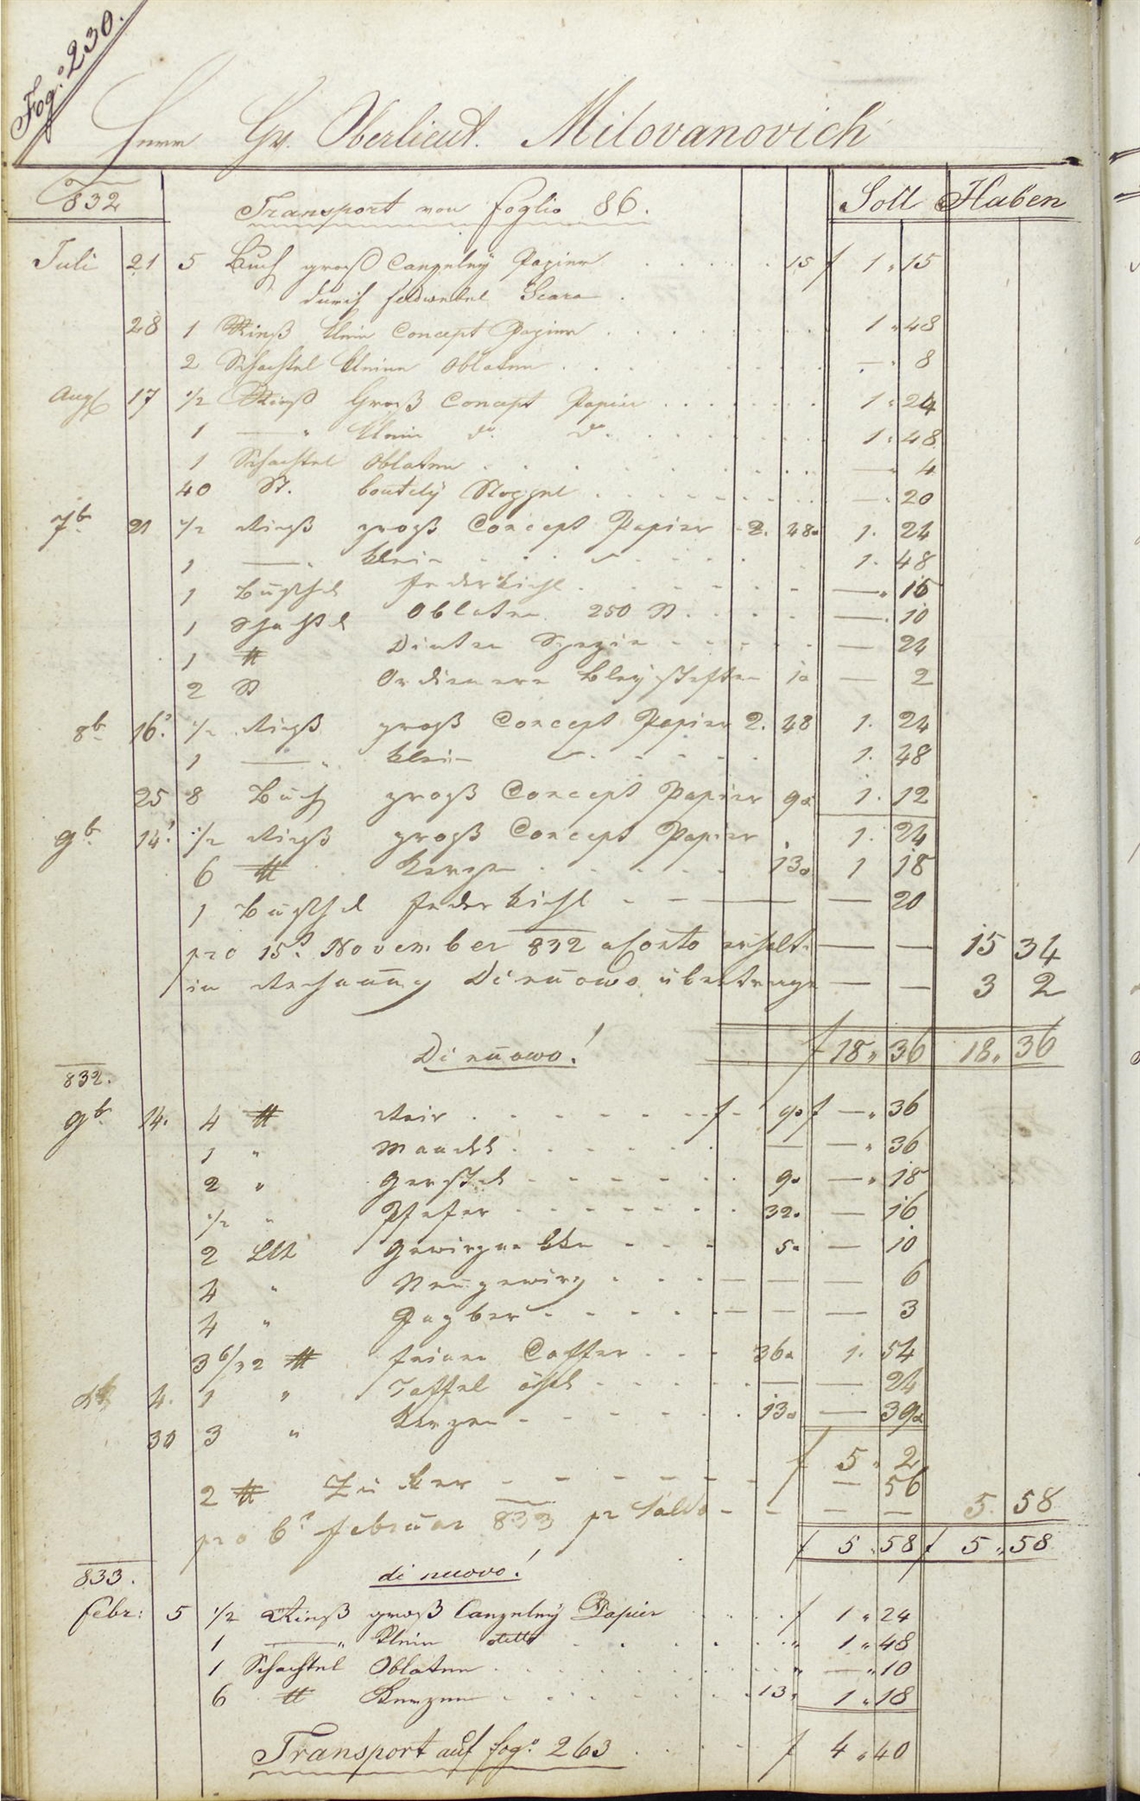 Fog: 230.
Herrn Gr. Oberlieut. Milovanovich
832 Transport von Foglio 86. Soll Haben
Juli 21 5 Buch groß Canzeley Papier 15 f 1 " 15
durch Feldwebel
28 1 Rieß klein Concept Papier 1 " 48
2 Schachtel kleine Oblaten — " 8
Aug 17 1/2 Rieß Groß Concept Papier 1 " 24
1 — " klein do do 1 " 48
1 Schachtel Oblaten " 4
40 St. boutely Stoppel — " 20
7b 21 1/2 Rieß groß Concept Papier 2. 48 1. 24
1 — " klein 1. 48
1 Büschel Federkiehl — . 15
1 Schachtel Oblaten 250 St — . 10
1 ℔ Dinten Spezie — 24
2 St Ordienere Bleystiften 1a — 2
8b 16. 1/2 Rieß groß Concept Papier 2. 48 1. 24
1 — " klein 1. 48
25 8 Buch groß Concept Papier 9a 1. 12
9b 14. 1/2 Rieß groß Concept Papier 1. 24
6 ℔ Kerzen 13a 1 18
1 Büschel Federkiehl — — 20
pro 15. November 832 aConto erhalt. — — 15 34
in Rechnung Dinuowo übertrage — — 3 2
Dinuowo! f 18 " 36 18 " 36
832.
9b 14. 4 ℔ Reis f - 9a f — " 36
1 " Mandel — — " 36
2 " Gerstel 9a — " 18
1/2 " Pfefer 32a — 16
2 Lth 5a — 10
4 " Neugewirz — — — 6
4 " — — — 3
3 6/32 ℔ feinen Caffee 36a 1. 54
4. 1 " Taffel öhl — — 24
30 3 " Kerzen 13a — 39a
f 5 " 2
2 ℔ Zucker — 56
pro 6. Februar 833 pr Saldo — — 5 58
f 5 " 58 f 5 " 58
833. di nuovo!
Febr: 5 1/2 Rieß groß Canzeley Papier f 1 " 24
1 — " klein detto " 1 " 48
1 Schachtel Oblaten " — " 10
6 ℔ Kerzen 13a 1 " 18
Transport auf fog: 263 f 4 " 40